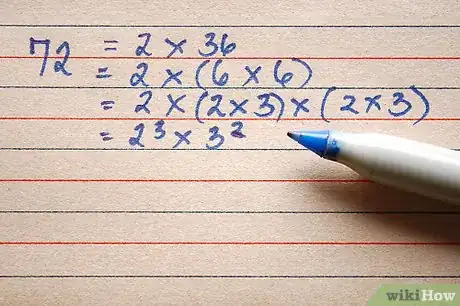 72 = 2 × 36
= 2 × (6 × 6)
= 2 × (2 × 3) × (2 × 3)
= 2³ × 3²
wikiHow